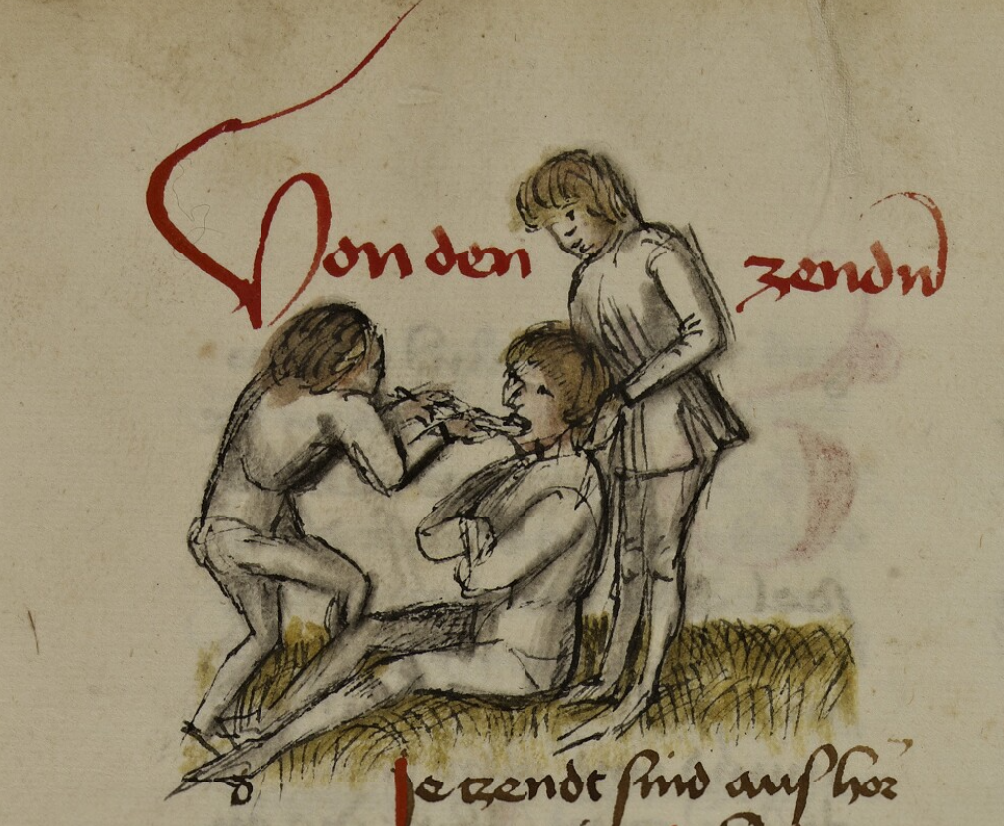 Von den zendn
Je tzendt sind aus hor